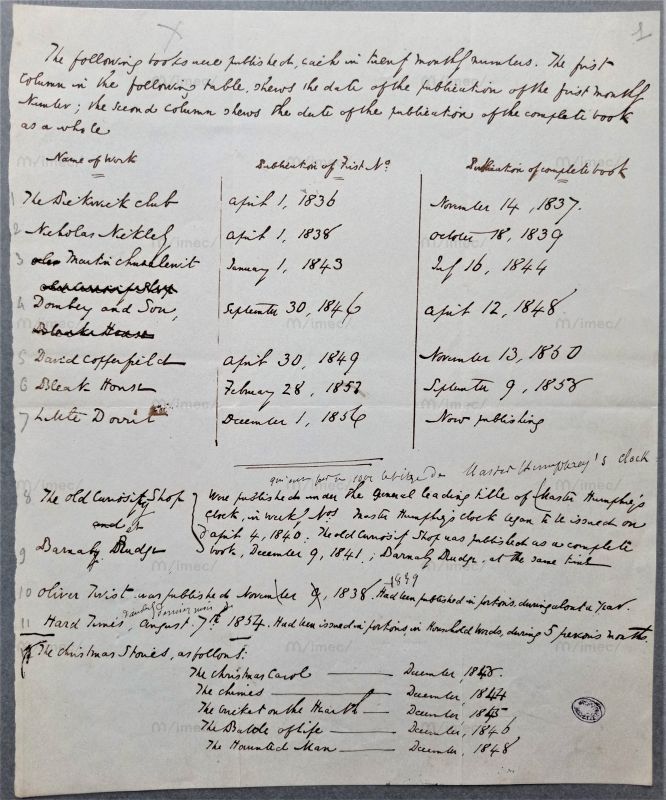 1
The following books were published, each in twenty monthly numbers. The first
column in the following table, shews the date of the publication of the first monthly
Number; the second column shews the date of the publication of the complete book
as a whole
Name of Work Publication of First No Publication of complete book
1 The Pickwick Club April 1, 1836 November 14, 1837.
2 Nicholas Nickleby April 1, 1838 October 18, 1839
3 Martin Chuzzlewit January 1, 1843 July 16, 1844
4 Dombey and Son, September 30, 1846 April 12, 1848
Bleak House
5 David Copperfield April 30, 1849 November 13, 1850
6 Bleak House February 28, 1852 September 9, 1853
7 Little Dorrit December 1, 1856 Now publishing
Master Humphrey's Clock
8 The Old Curiosity Shop Were published under the general leading title of Master Humphrey's
and et Clock, in weekly Nos. Master Humphrey's Clock began to be issued on
9 Barnaby Rudge April 4, 1840. The Old Curiosity Shop was published as a complete
book, December 9, 1841; Barnaby Rudge, at the same time
1839
10 Oliver Twist was published November 9, 1838. Had been published in portions, during about a year.
11 Hard Times, August 7th 1854. Had been issued in portions, in Household Words, during 5 previous months.
The Christmas Stories, as follows:
The Christmas Carol December, 1843.
The Chimes December, 1844
The Cricket on the Hearth December, 1845
The Battle of Life December, 1846
The Haunted Man December, 1848
m/imec/